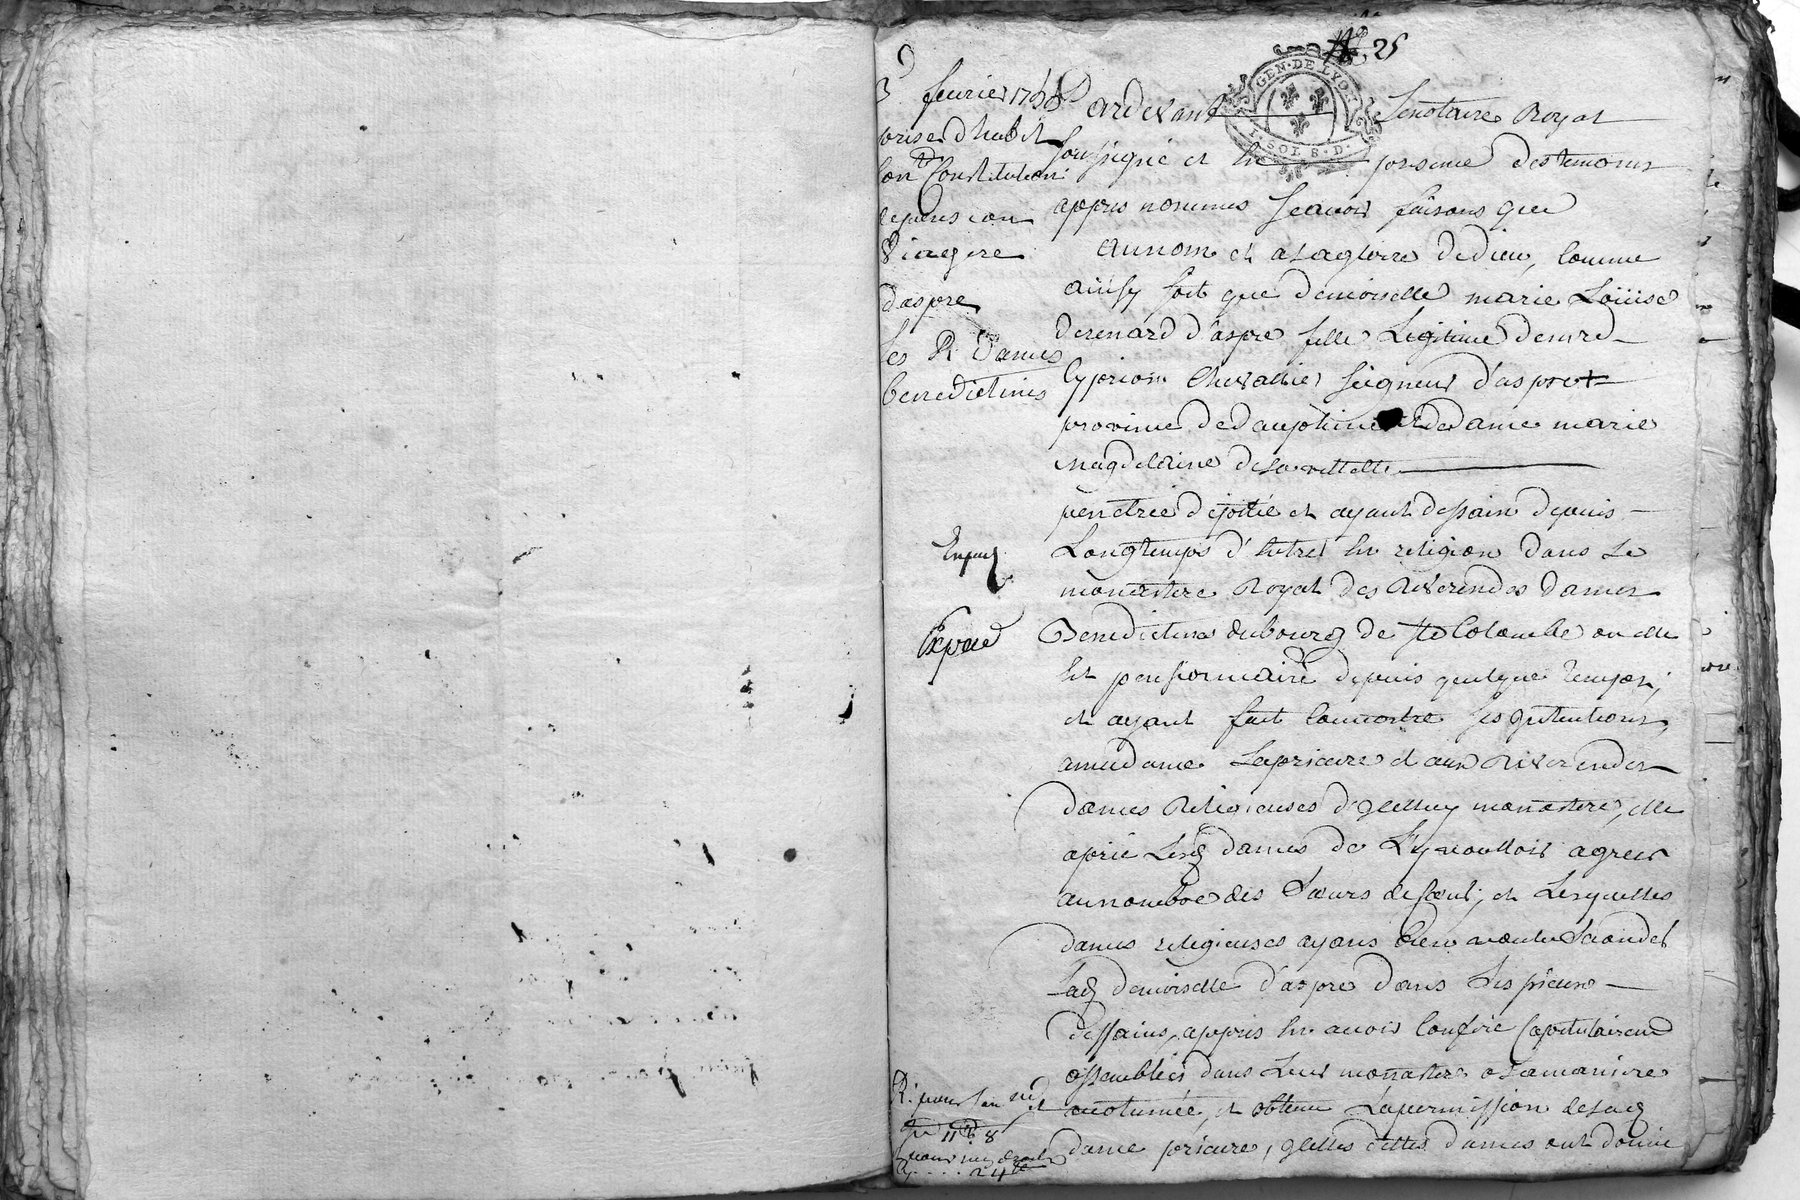 25
GEN. DE LYON
1. SOL 8. D.
3 fevrier 1768
prise d'habit
Constitution
de pension
Viagere
d'aspre
les R. Dames
benedictines
Pardevant Le notaire Royal
soussigné et en presence des temoins
appres nommes scavoir faisons que
au nom et a la gloire de dieu, comme
ainsy soit que demoiselle marie Loüise
de renard d'aspre fille Legitime de mre
Cyprien Chevallier seigneur d'aspre
province de dauphine et de dame marie
magdelaine de la villette
penetrée de pieté et ayant dessain depuis
Longtemps d'entrer en religion dans Le
monastere Royal des Reverendes dames
Benedictines du bourg de ste Colombe ou elle
est pensionnaire depuis quelque temps,
et ayant fait connoitre ses intentions
a madame La prieure et aux Reverendes
dames Religieuses d'icelluy monastere, elle
a prié Lesd dames de L'y vouloir agreer
au nombre des sœurs de chœur, et Lesquelles
dames religieuses ayans bien voulu seconder
Lad demoiselle d'aspre dans ses pieux
dessains, appres en avoir conferé Capitulairemt
assemblées dans Leur monastere a la maniere
accoutumée, et obtenu La permission de lad
dame prieure, icelles dittes dames ont donné
Exped
Expedié
11 8
24